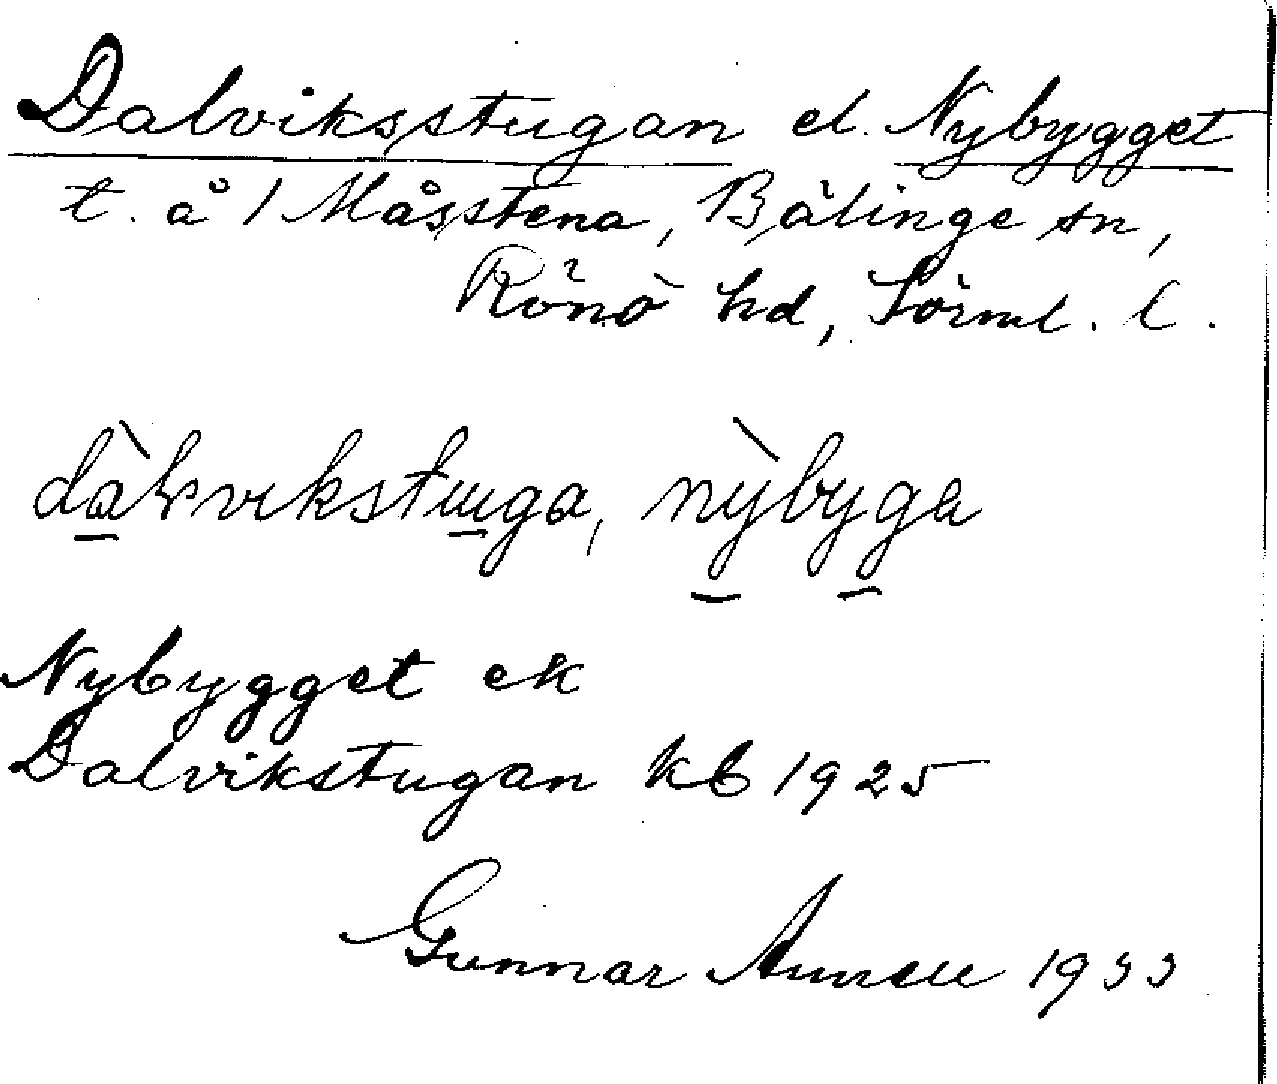 Dalviksstugan el. Nybygget
t. å 1 Måsstena, Bälinge sn,
Rönö hd, Sörml. l.
dàlvikstuga, nỳbyga
Nybygget ek
Dalvikstugan kb 1925
Gunnar 1933